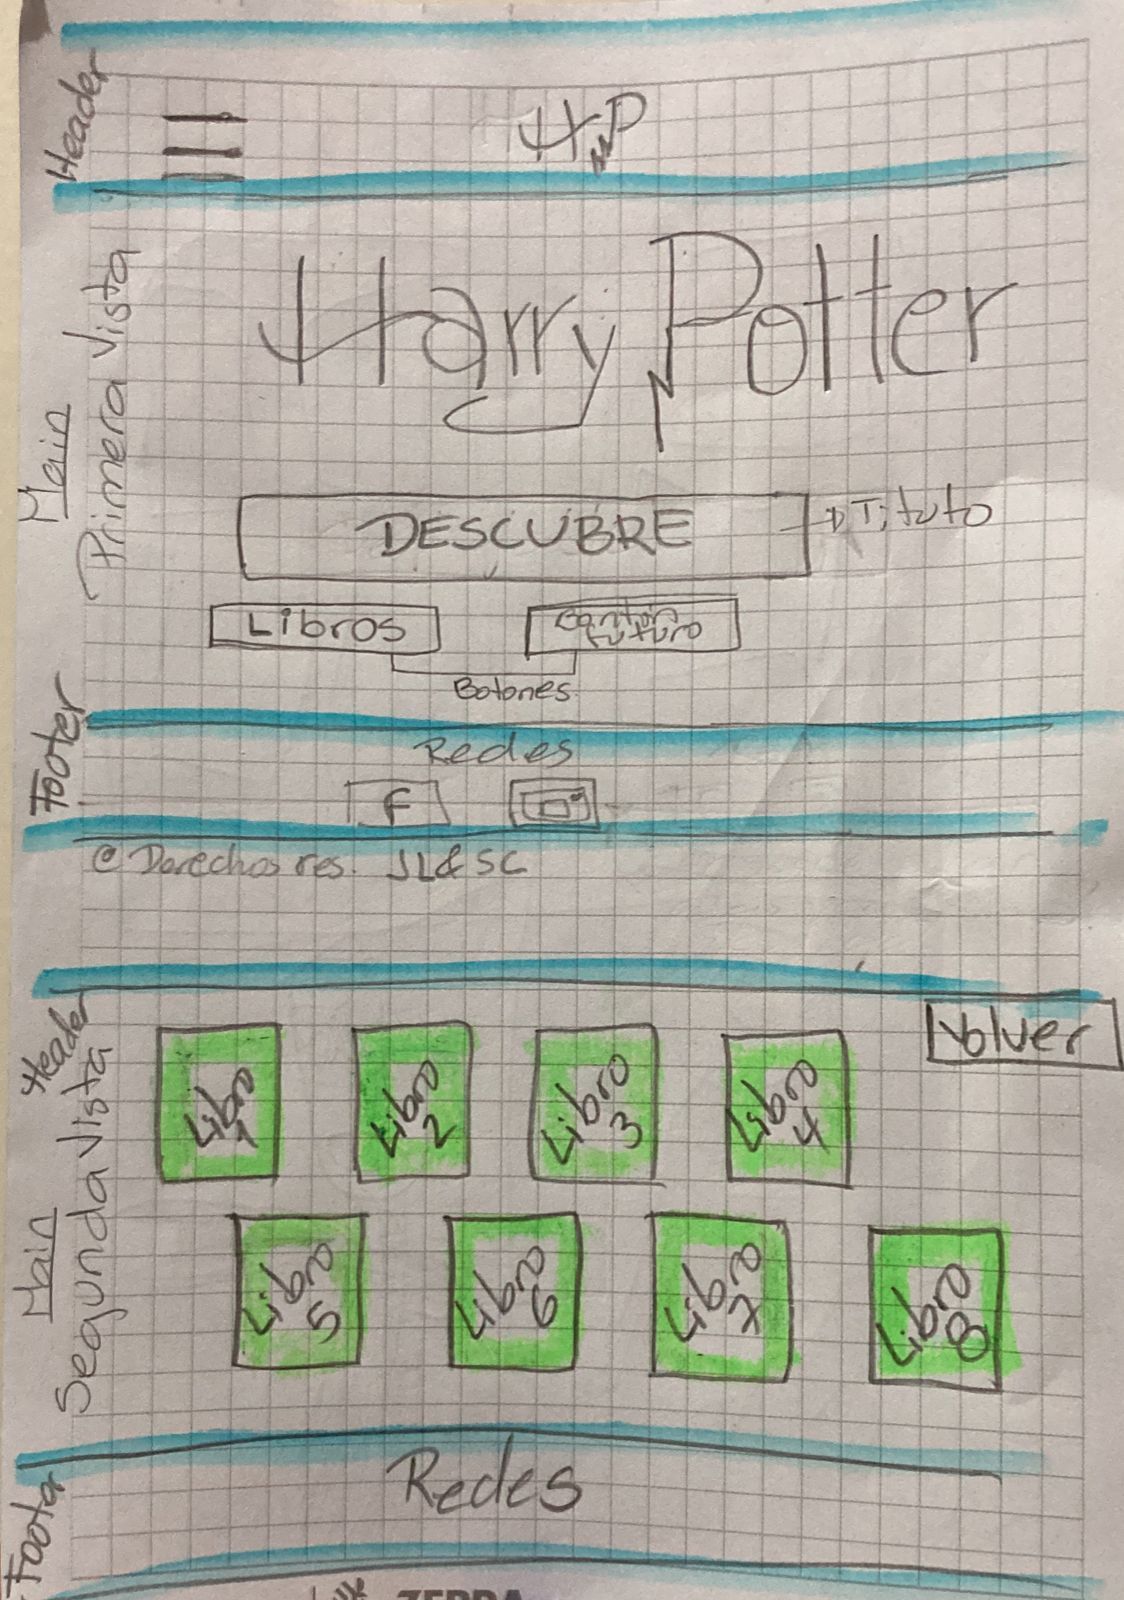 Header
HP
Main
Primera Vista
Harry Potter
DESCUBRE
Tituto
Libros
Botones
Footer
Redes
F
@ Derechos res. JL & SC
Header
Volver
Main
Segunda Vista
Libro 1
Libro 2
Libro 3
Libro 4
Libro 5
Libro 6
Libro 7
Libro 8
Footer
Redes